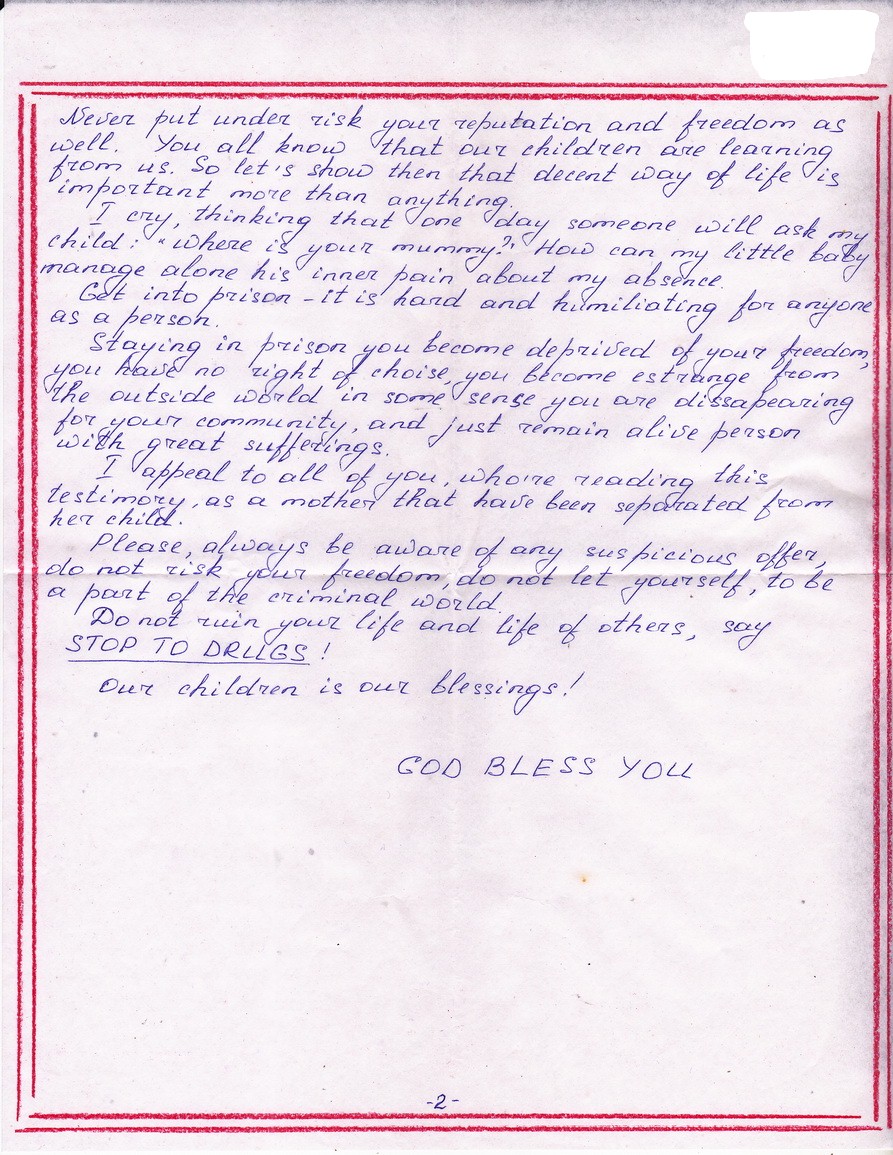 Never put under risk your reputation and freedom as
well. You all know that our children are learning
from us. So let's show then that decent way of life is
important more than anything.
I cry, thinking that one day someone will ask my
child: "where is your mummy?" How can my little baby
manage alone his inner pain about my absence.
Get into prison - it is hard and humiliating for anyone
as a person.
Staying in prison you become deprived of your freedom,
you have no right of choise, you become estrange from
the outside world in some sense you are dissapearing
for your community, and just remain alive person
with great sufferings.
I appeal to all of you, who're reading this
testimory, as a mother that have been separated from
her child.
Please, always be aware of any suspicious offer,
do not risk your freedom, do not let yourself, to be
a part of the criminal world.
Do not ruin your life and life of others, say
STOP TO DRUGS!
Our children is our blessings!
GOD BLESS YOU
-2-